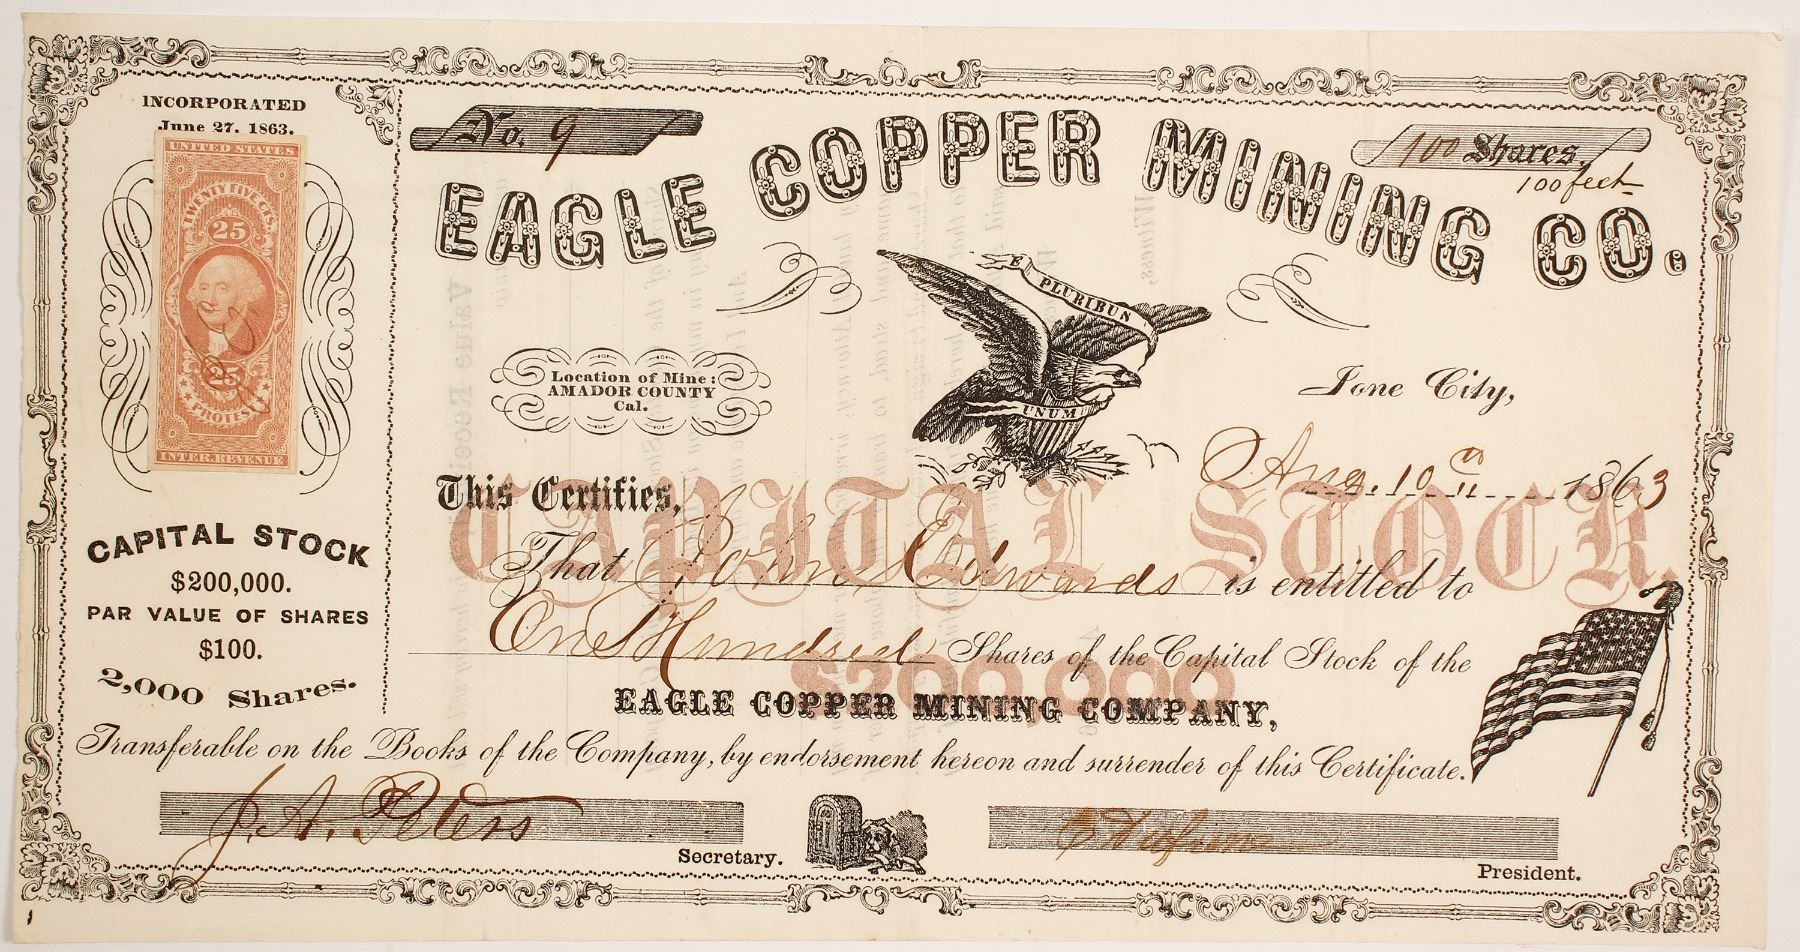 INCORPORATED
June 27. 1863.
UNITED STATES
TWENTY FIVE CTS.
25
25
PROTEST
INTER. REVENUE
CAPITAL STOCK
$200,000.
PAR VALUE OF SHARES
$100.
2,000 Shares.
No. 9
100 Shares.
100 feet
EAGLE COPPER MINING CO.
E PLURIBUN
UNUM
Location of Mine:
AMADOR COUNTY
Cal.
Ione City,
Aug. 10th 1863
CAPITAL STOCK.
This Certifies,
That John Edwards is entitled to
One Hundred Shares of the Capital Stock of the
$200,000
EAGLE COPPER MINING COMPANY,
Transferable on the Books of the Company, by endorsement hereon and surrender of this Certificate.
J. A. Peters
Secretary.
President.